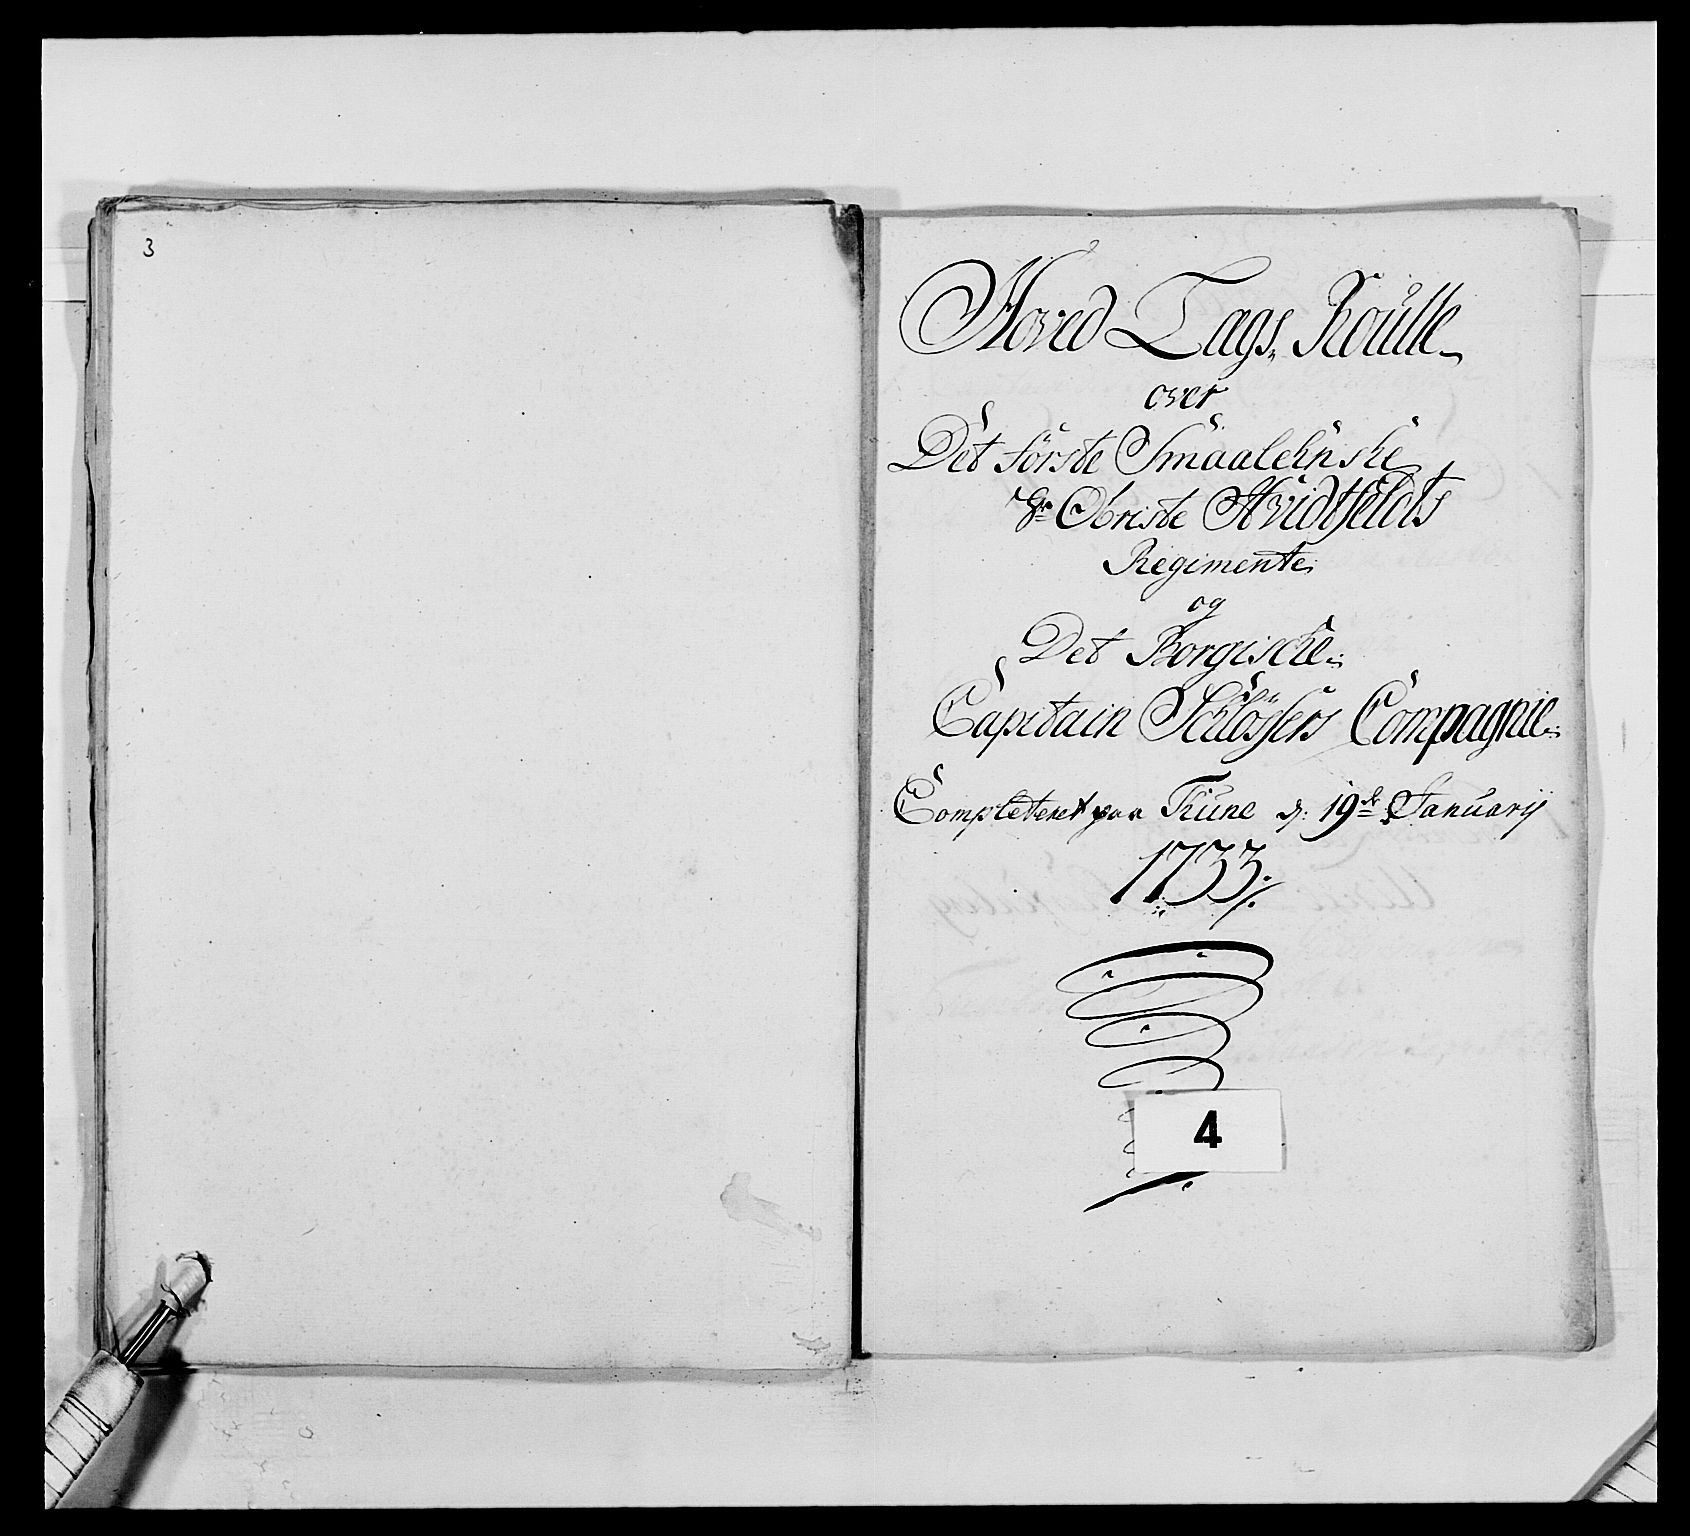 3
Hoved Lags, Roulle
over
Det förste Smaalehnske
Hr Obriste Hvidtfeldts
Regimente
og
Det Borgische
Capitain Schlössers Compagnie
Completeret paa Thune d: 19de January
1733
4